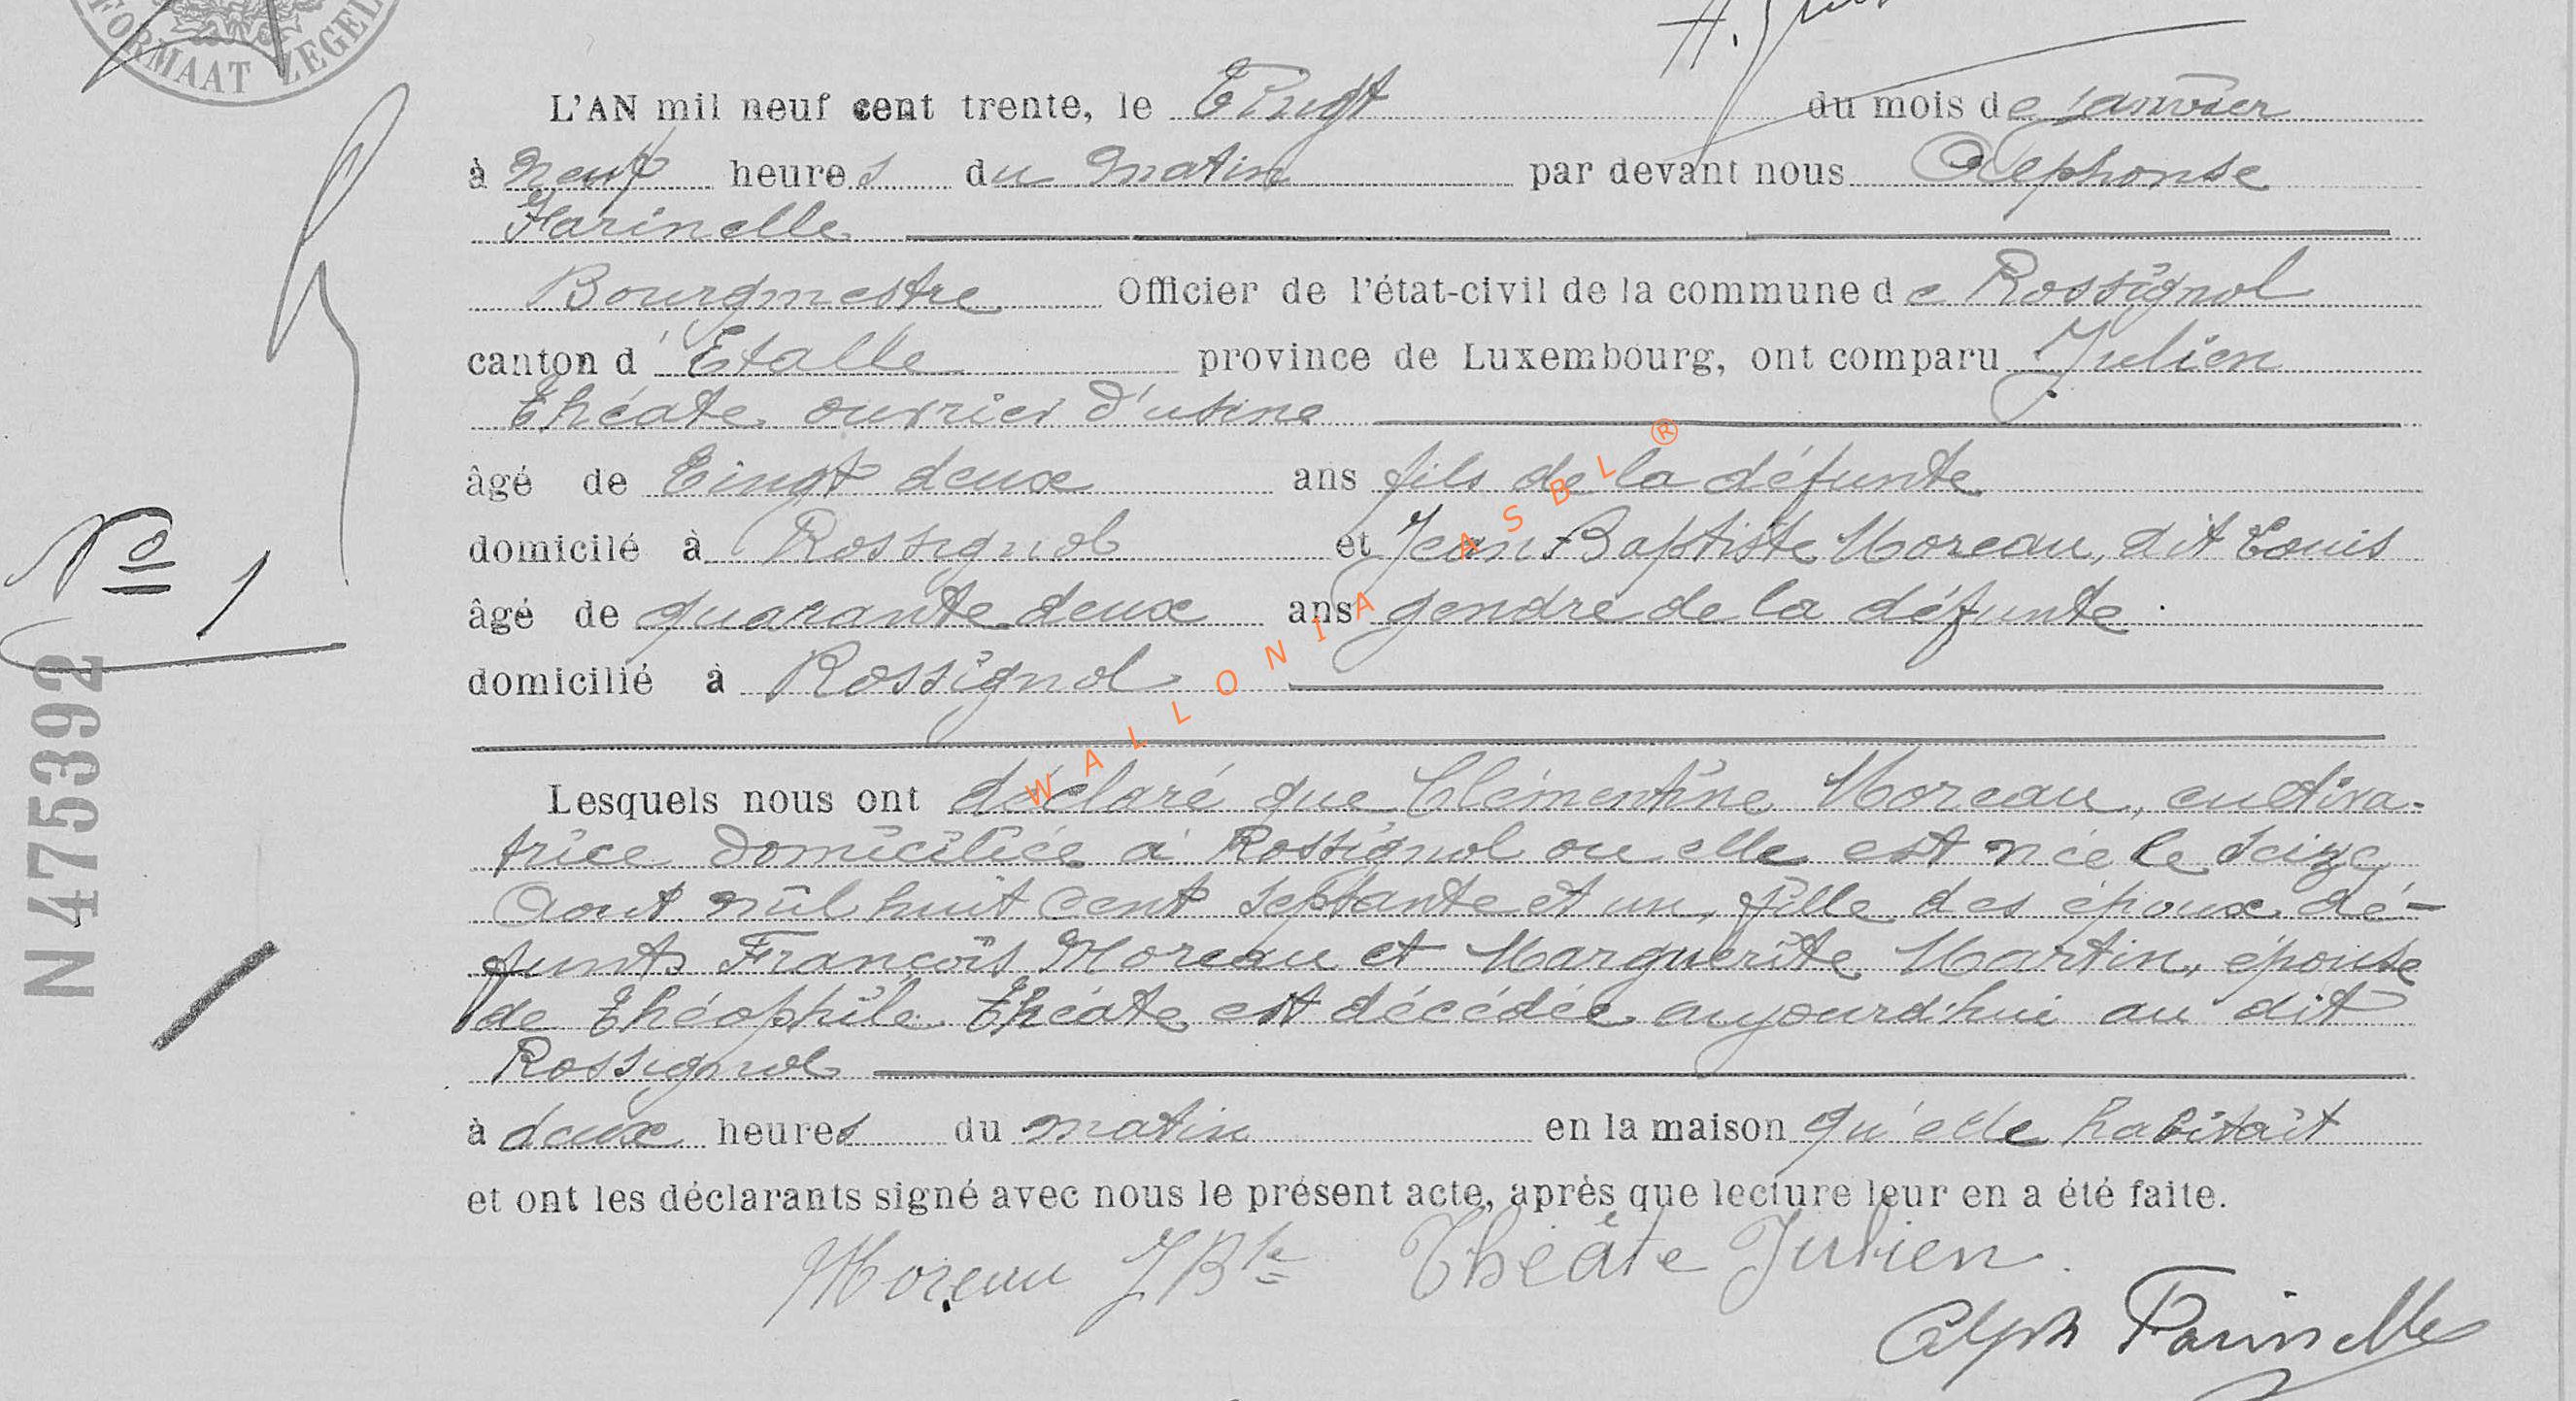 FORMAAT ZEGEL
L'AN mil neuf cent trente, le Vingt du mois de Janvier
à neuf heures du matin par devant nous Alephonse
Farinelle
Bourgmestre Officier de l'état-civil de la commune de Rossignol
canton d'Etalle province de Luxembourg, ont comparu Julien
Théate ouvrier d'usine
âgé de Vingt deux ans fils de la défunte
domicilé à Rossignol et Jean Baptiste Moreau, dit Louis
âgé de quarante deux ans gendre de la défunte.
domicilié à Rossignol
Lesquels nous ont déclaré que Clémentine Moreau, cultiva-
trice domiciliée à Rossignol ou elle est née le seize
Aout mil huit cent septante et un, fille des époux dé-
funts François Moreau et Marguerite Martin, épouse
de Théophile Théate est décédée aujourd'hui au dit
Rossignol
à deux heures du matin en la maison qu'elle habitait
et ont les déclarants signé avec nous le présent acte, après que lecture leur en a été faite.
Moreau JBte Théâte Julien.
Alph Farinelle
No 1
N 475392
WALLONIA ASBL ®